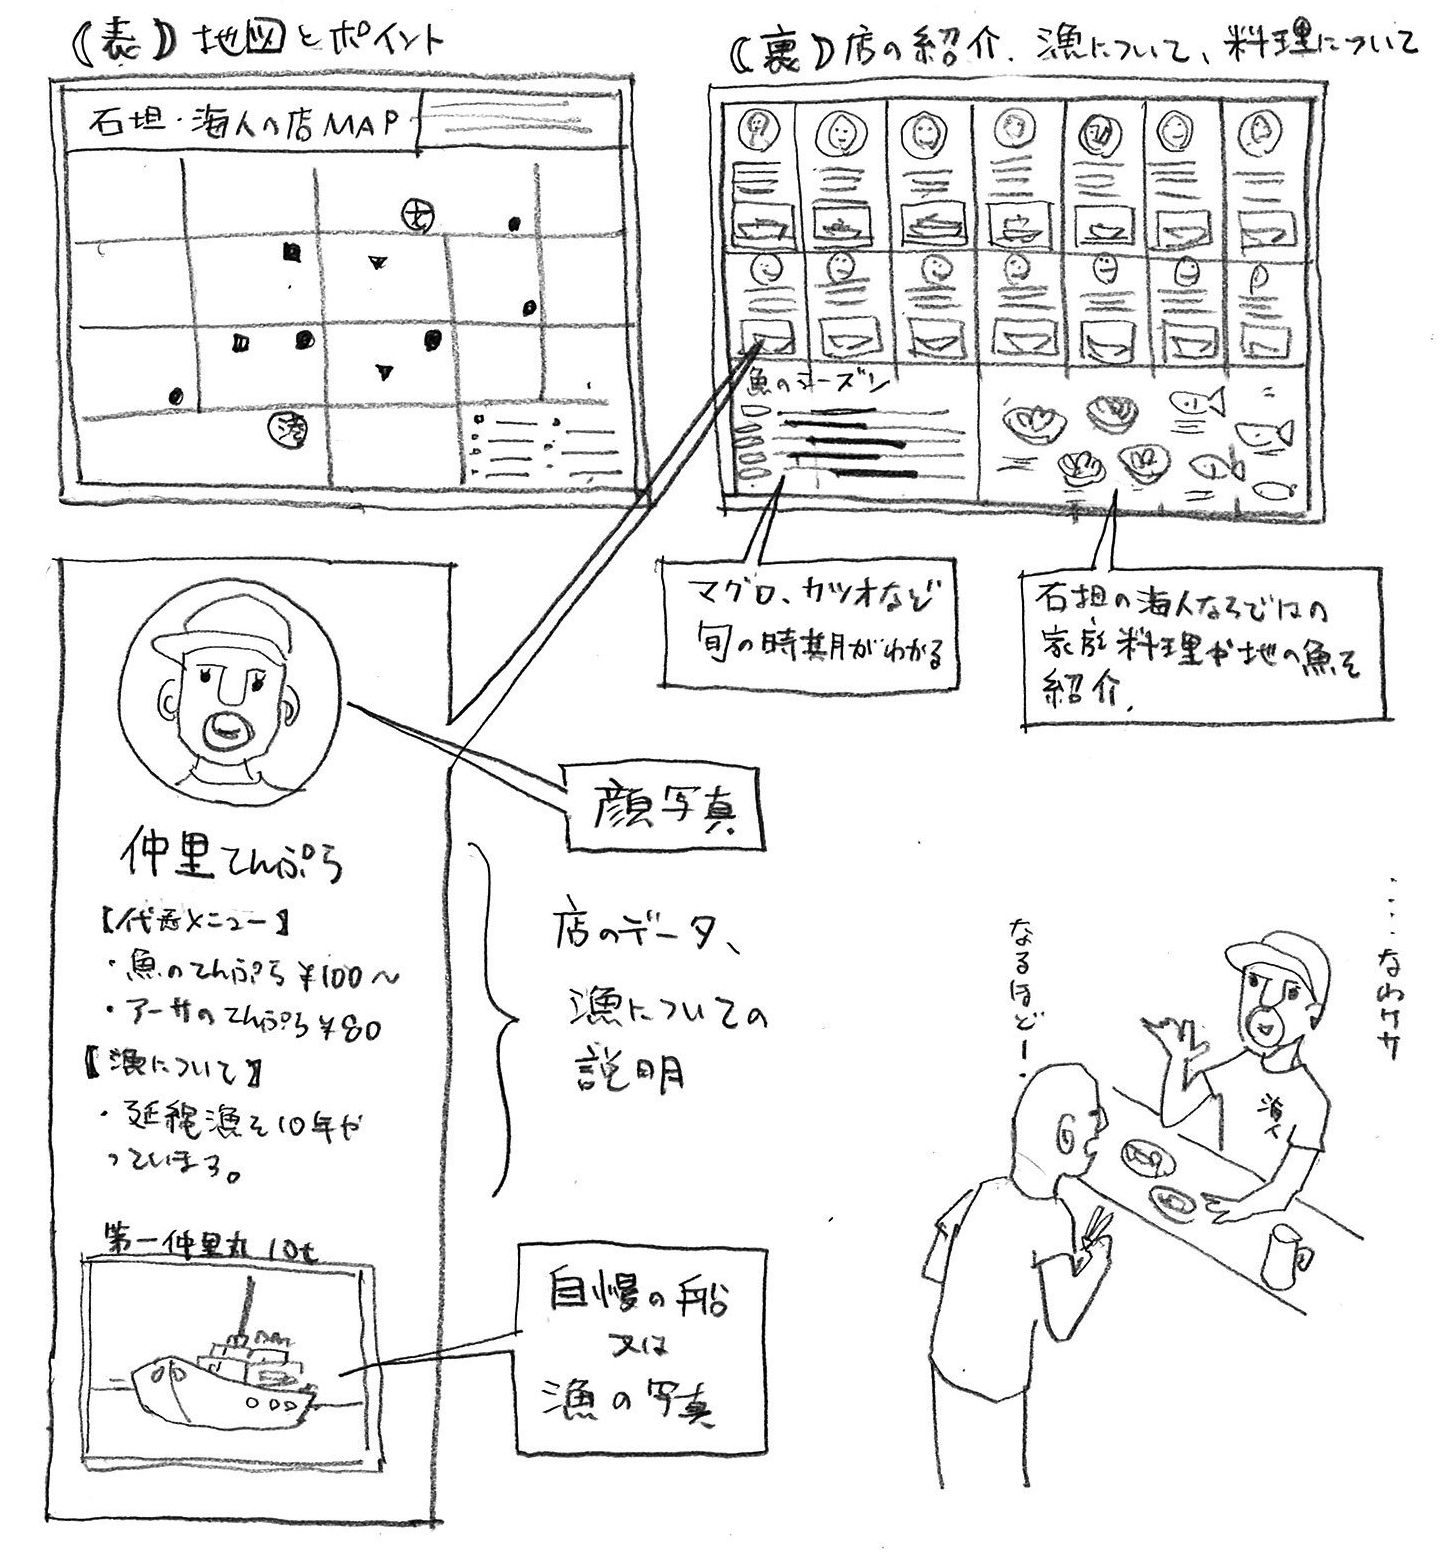 (表) 地図とポイント
石坦・海人の店MAP
港
(裏) 店の紹介、漁について、料理について
魚のシーズン
マグロ、カツオなど
旬の時期がわかる
石坦の海人ならではの
家庭料理や地の魚を
紹介.
顔写真
仲里てんぷら
【代表メニュー】
・魚のてんぷら ¥100～
・アーサのてんぷら ¥80
【漁について】
・延縄漁を10年や
っています。
第一仲里丸 10t
店のデータ、
漁についての
説明
自慢の船
又は
漁の写真
なるほどー.
‥‥なわけサ
海人